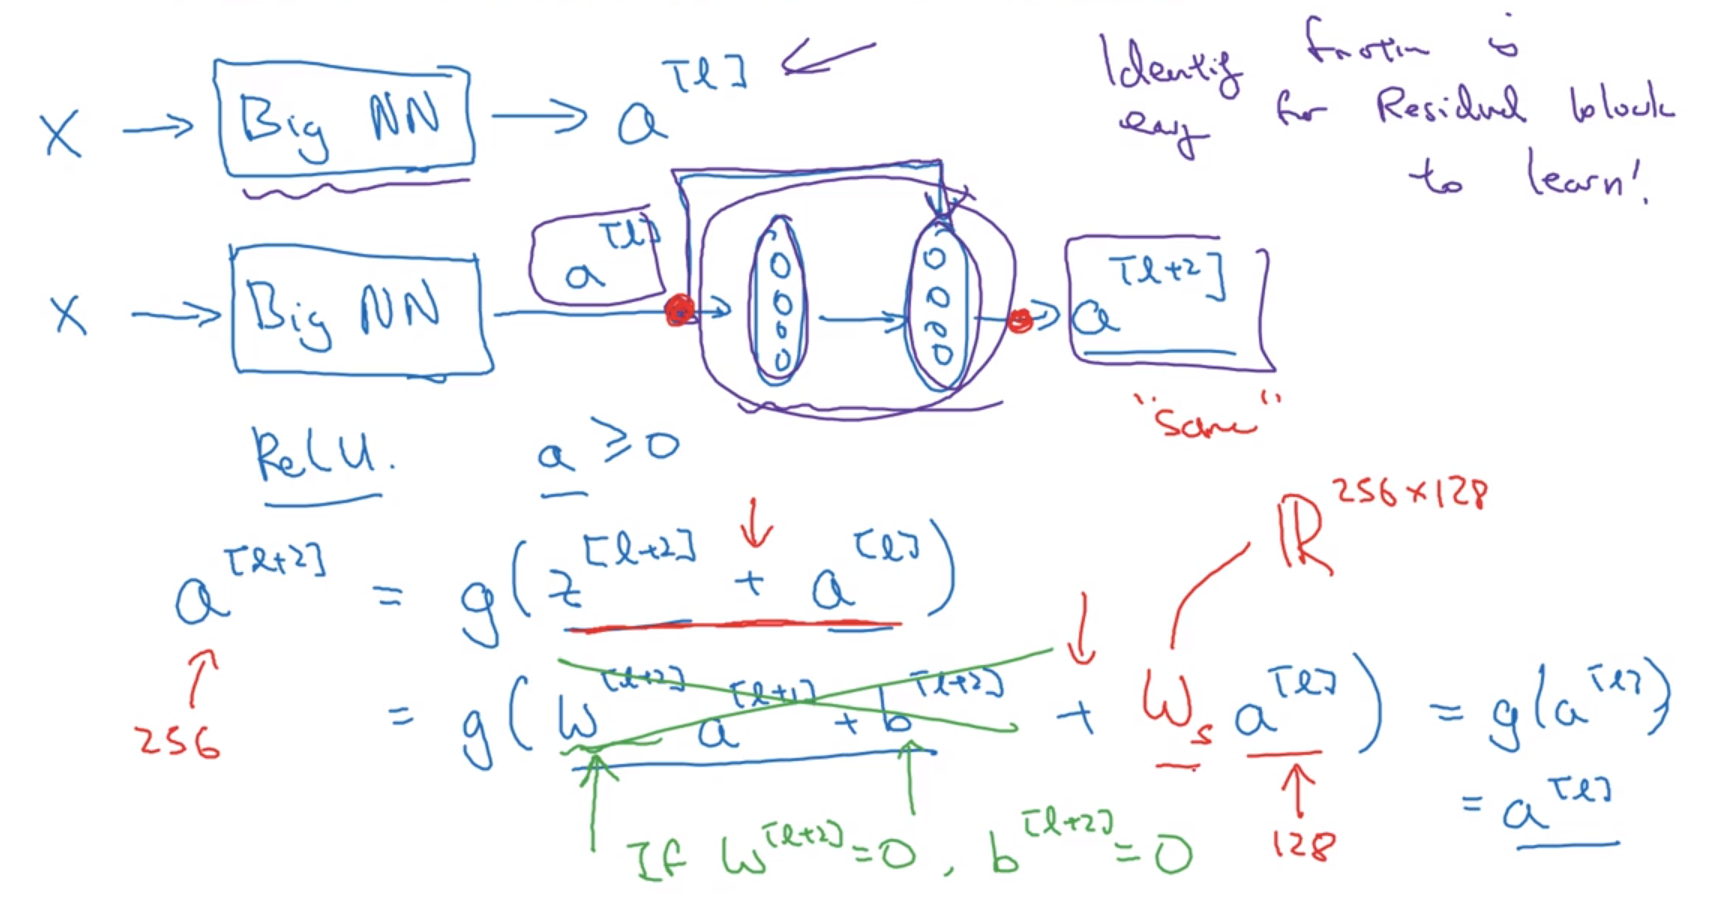 X → Big NN → a^[l] ←
Identity function is
easy for Residual block
to learn!
X → Big NN → a^[l] → a^[l+2]
"same"
ReLU. a ≥ 0
ℝ^256×128
a^[l+2] = g(z^[l+2] + a^[l])
256
= g(W^[l+2] a^[l+1] + b^[l+2] + W_s a^[l]) = g(a^[l])
= a^[l]
If W^[l+2] = 0, b^[l+2] = 0
128